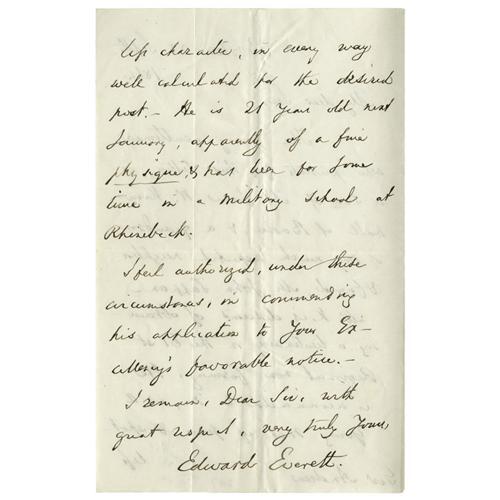 up character, in every way
well calculated for the desired
post. - He is 21 year old next
January, apparently of a fine
physique, & has been for some
time in a military school at
Rhinebeck.
I feel authorized, under these
circumstances, in commending
his application to Your Ex-
cellency's favorable notice. -
I remain, Dear Sir, with
great respect, very truly Yours,
Edward Everett.